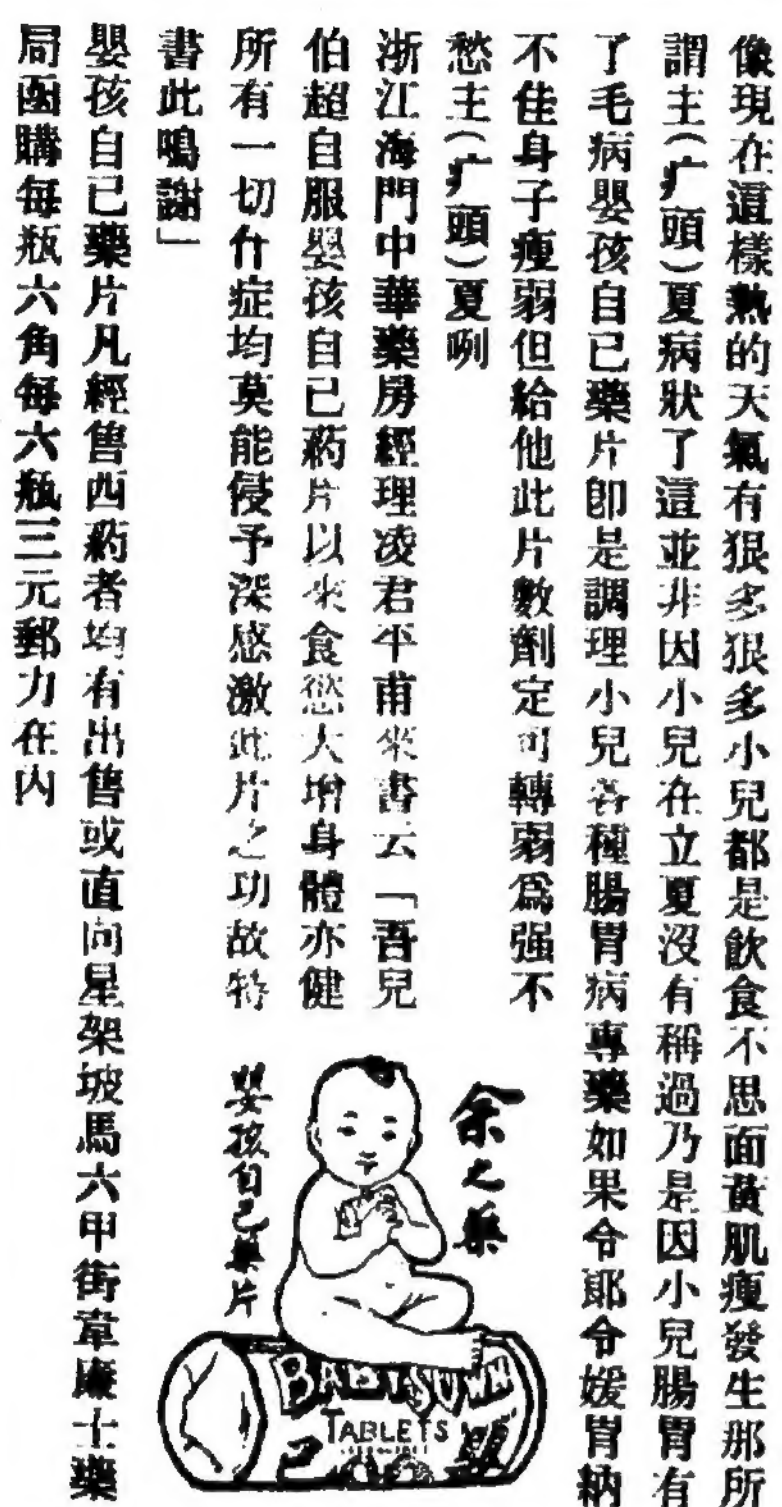 像現在這樣熱的天氣有狠多狠多小兒都是飲食不思面黃肌瘦發生那所
謂主(疒頭)夏病狀了這並非因小兒在立夏沒有稱過乃是因小兒腸胃有
了毛病嬰孩自己藥片卽是調理小兒各種腸胃病專藥如果令郎令嫒胃納
不佳身子瘦弱但給他此片數劑定可轉弱爲强不
愁主(疒頭)夏咧
浙江海門中華藥房經理凌君平甫來書云「吾兒
伯超自服嬰孩自己葯片以來食慾大增身體亦健
所有一切什症均莫能侵予深感激此片之功故特
書此鳴謝」
嬰孩自己藥片凡經售西葯者均有出售或直向星架坡馬六甲街韋廉士藥
局函購每瓶六角每六瓶三元郵力在內
余之藥
嬰孩自己藥片
BABY'S OWN
TABLETS